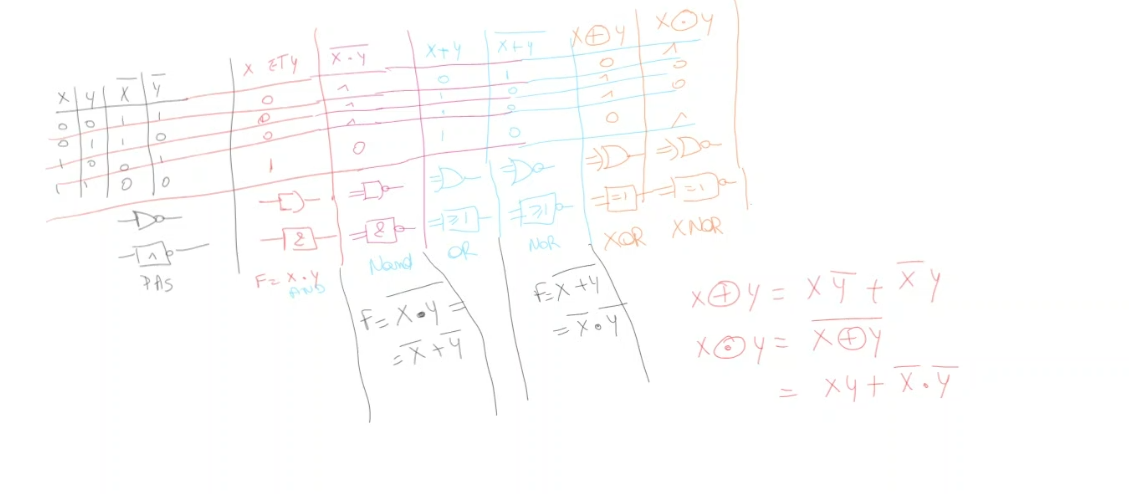 x y x̅ y̅ | x ET y | \overline{x·y} | x+y | \overline{x+y} | x⊕y | x⊙y
0 0 1 1 | 0 | 1 | 0 | 1 | 0 | 1
0 1 1 0 | 0 | 1 | 1 | 0 | 1 | 0
1 0 0 1 | 0 | 1 | 1 | 0 | 1 | 0
1 1 0 0 | 1 | 0 | 1 | 0 | 0 | 1
1 & & ≥1 ≥1 =1 =1
PAS
F= x·y
AND
Nand
OR
NOR
XOR
XNOR
F= \overline{x·y} =
= x̅ + y̅
F= \overline{x+y}
= x̅·y̅
x⊕y = x y̅ + x̅ y
x⊙y = \overline{x⊕y}
= xy + x̅·y̅